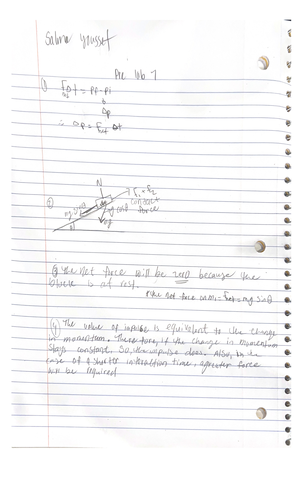 Salma Youssef
Pre lab 7
① F_net Δt = Pf - Pi
Δp
∴ Δp = F_net Δt
②
N
N
F₁ = F₂
contact
force
mg cosθ
mg
③ The Net force will be zero because the
block is at rest.
net force on m₁ = F_net = mg sinθ
④ The value of impulse is equivalent to the change
in momentum. Therefore, if the change in momentum
stays constant, so the impulse does. Also, in the
case of a shorter interaction time, a greater force
will be required